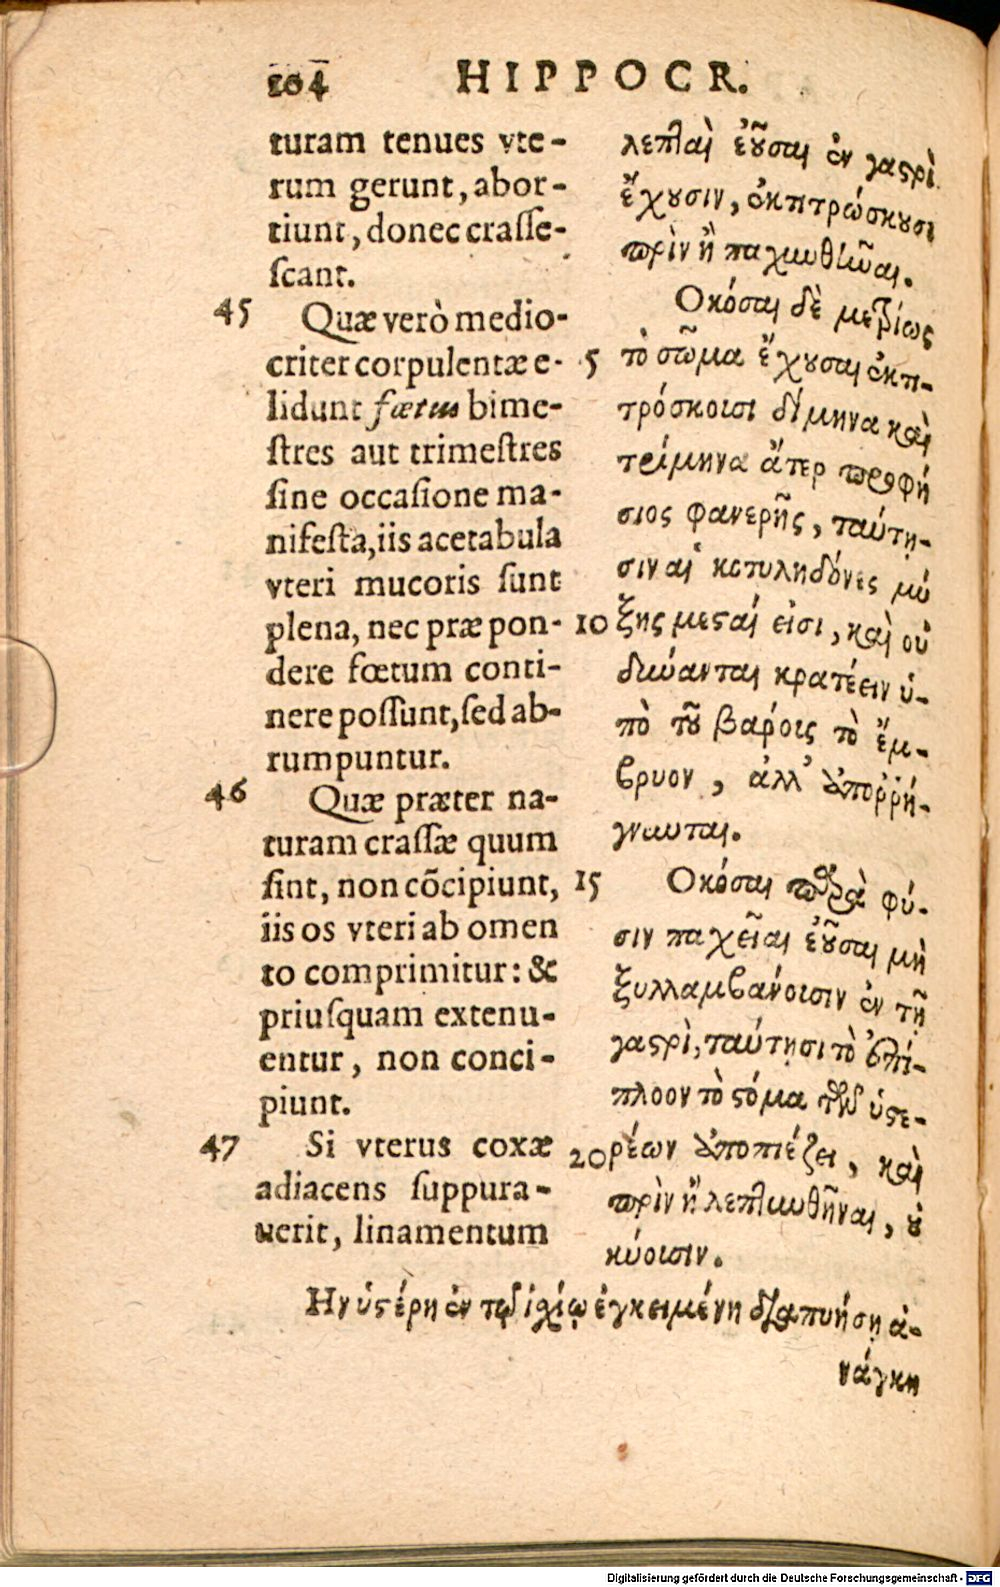 104 HIPPOCR.
turam tenues vte-
rum gerunt, abor-
tiunt, donec crasse-
scant.
45 Quæ verò medio-
criter corpulentæ e-
lidunt fœtus bime-
stres aut trimestres
sine occasione ma-
nifesta, iis acetabula
vteri mucoris sunt
plena, nec præ pon-
dere fœtum conti-
nere possunt, sed ab-
rumpuntur.
46 Quæ præter na-
turam crassæ quum
sint, non cõcipiunt,
iis os vteri ab omen
to comprimitur: &
priusquam extenu-
entur, non conci-
piunt.
47 Si vterus coxæ
adiacens suppura-
uerit, linamentum
λεπταὶ ἐοῦσαι ἐν γαστρὶ
ἔχουσιν, ἐκτιτρώσκουσι
πρὶν ἢ παχυνθῆναι.
Ὁκόσαι δὲ μετρίως
5 τὸ σῶμα ἔχουσαι ἐκτι-
τρόσκοισι δίμηνα καὶ
τρίμηνα ἄτερ προφή
σιος φανερῆς, ταύτη-
σιν αἱ κοτυληδόνες μύ
10 ξης μεσταί εἰσι, καὶ οὐ
δύνανται κρατέειν ὑ-
πὸ τοῦ βαρόις τὸ ἔμ-
βρυον, ἀλλ' ἀποῤῥή-
γνυνται.
15 Οκόσαι παρὰ φύ-
σιν παχεῖαι ἐοῦσαι μὴ
ξυλλαμβανόισιν ἐν τῇ
γαστρὶ, ταύτησι τὸ ἐπί-
πλοον τὸ στόμα τῶν ὑστε-
20 ρέων ἀποπιέζει, καὶ
πρὶν ἢ λεπτυνθῆναι, οὐ
κύοισιν.
Ην ὑστέρη ἐν τῷ ἰσχίῳ ἐγκειμένη διαπυήσῃ ἀ-
νάγκη
Digitalisierung gefördert durch die Deutsche Forschungsgemeinschaft - DFG